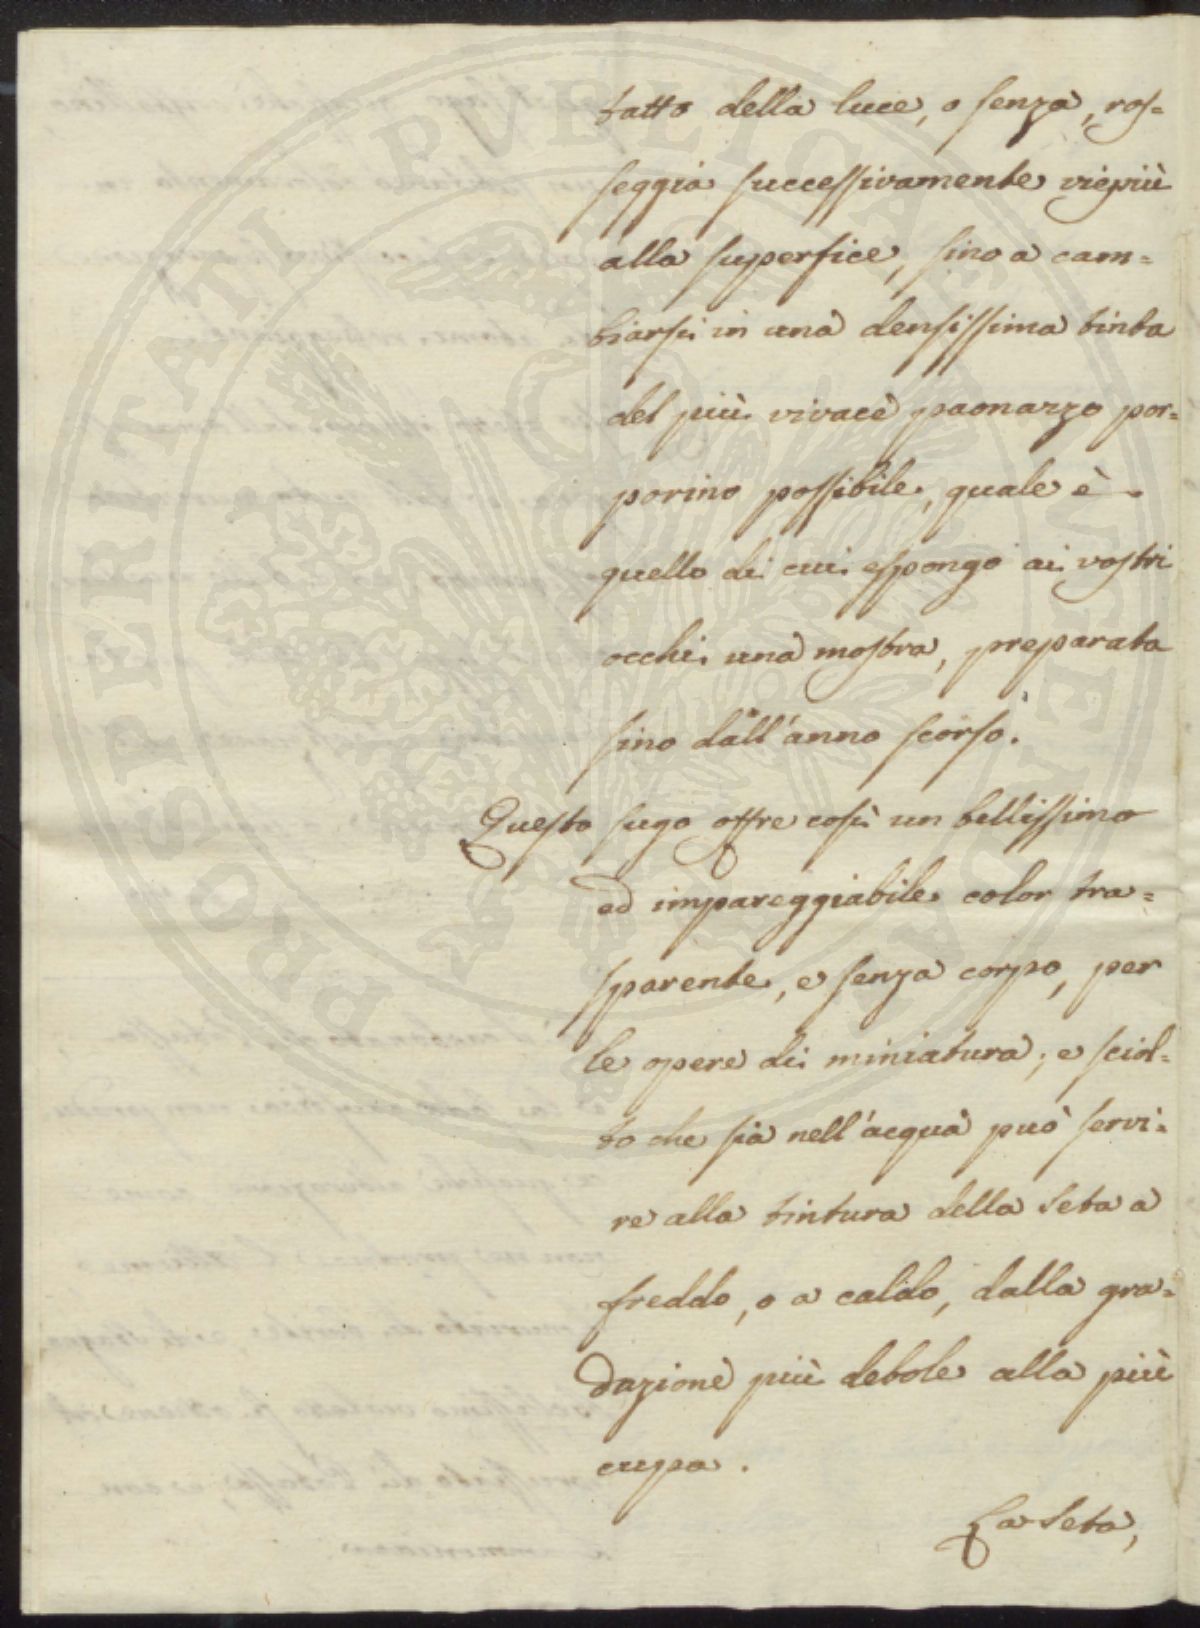 tatto della luce, o senza, ros=
seggia successivamente viepiù
alla superfice, sino a cam=
biarsi in una densissima tinta
del più vivace paonazzo por=
porino possibile, quale è
quello di cui espongo ai vostri
occhi una mostra, preparata
sino dall'anno scorso.
Questo sugo offre così un bellissimo
ed impareggiabile color tra=
sparente, e senza corpo, per
le opere di miniatura; e sciol=
to che sia nell'acqua può servi=
re alla tintura della seta a
freddo, o a caldo, dalla gra=
dazione più debole alla più
cupa.
La seta,
PROSPERITATI PUBLICAE AUGENDAE